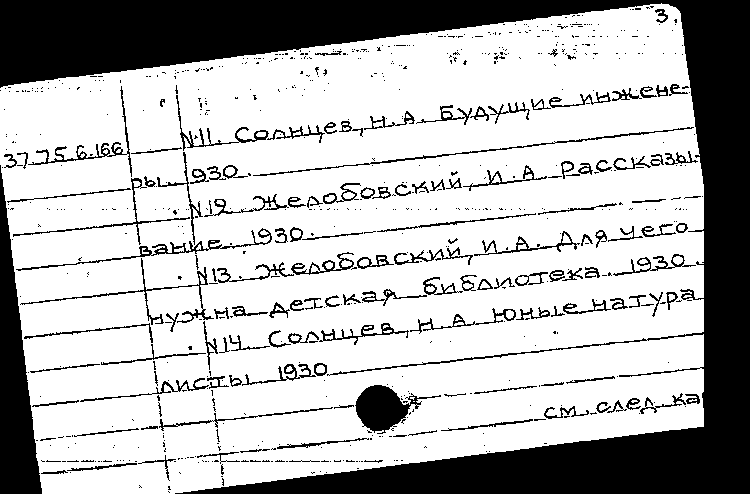 3.
37.75.6.166 N11. Солнцев, Н.А. Будущие инжене-
ры. 1930.
N12 Желобовский, И.А Рассказы-
вание. 1930.
N13. Желобовский, И.А. Для чего
нужна детская библиотека. 1930.
N14. Солнцев, Н.А. Юные натура
листы 1930
см. след. ка